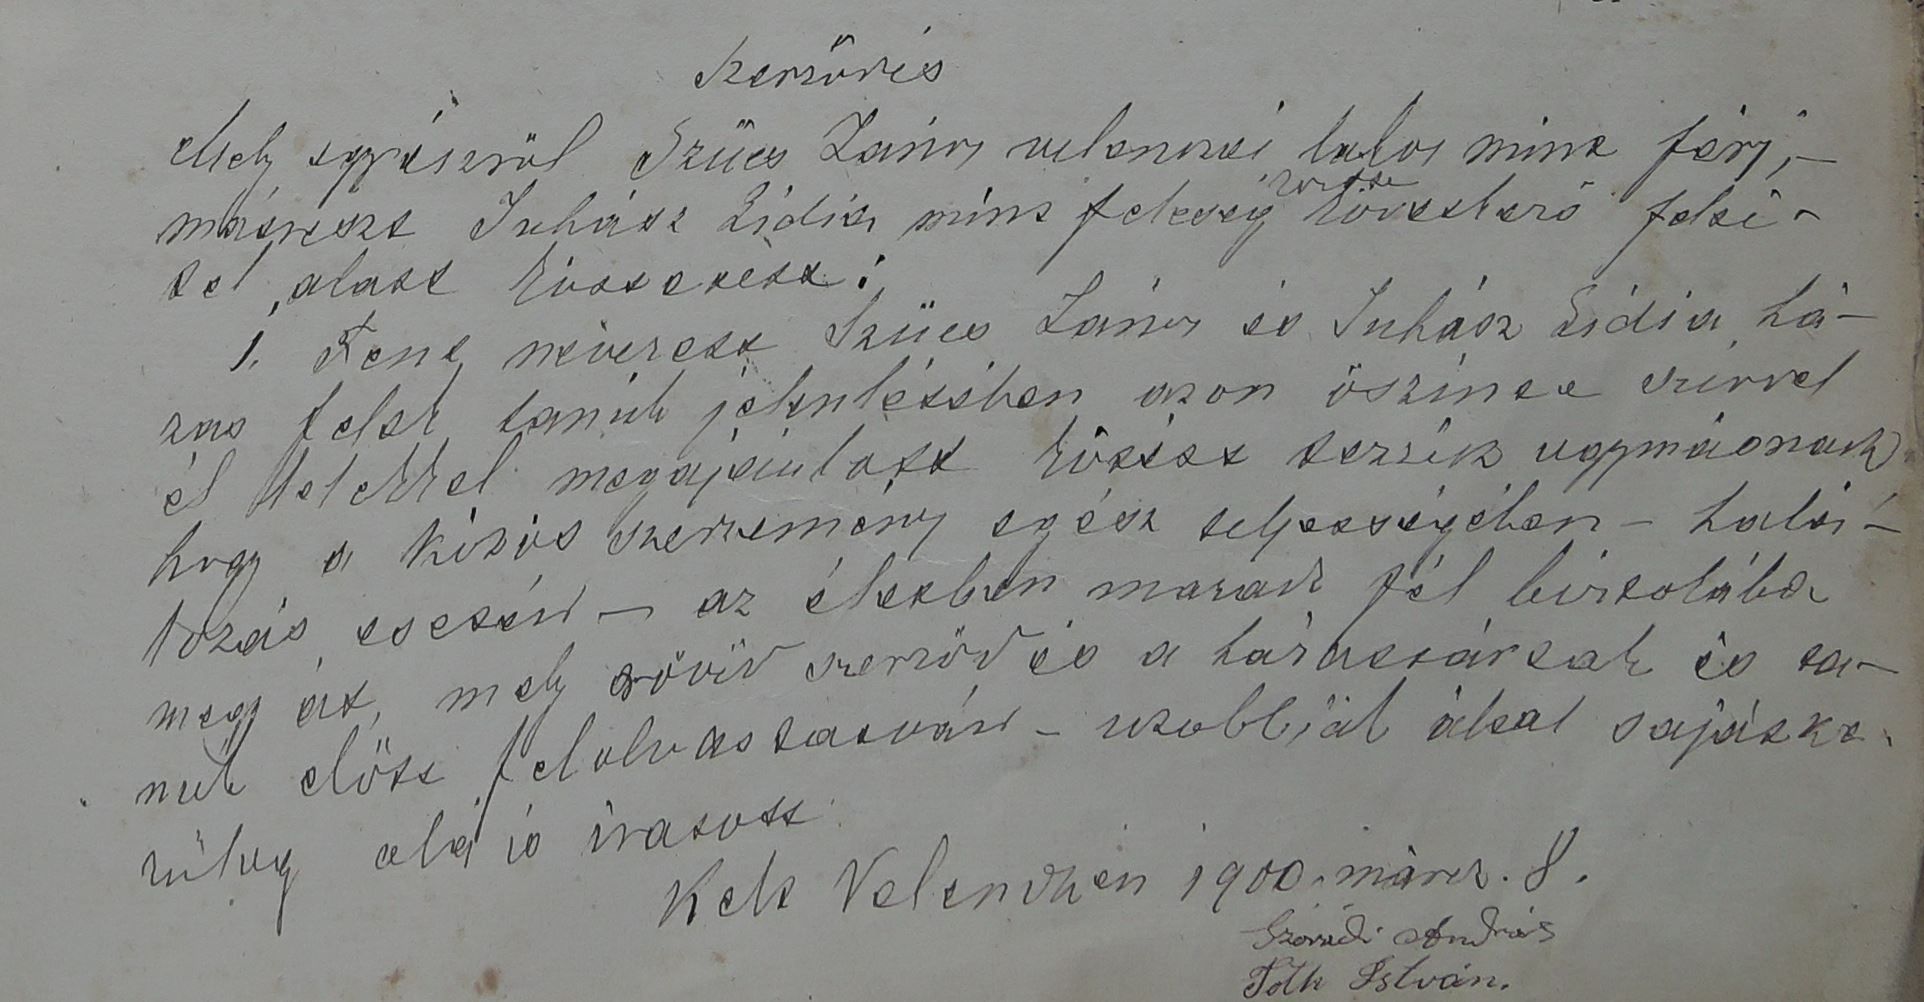 Szerződés
Mely egyrészről Szűcs János velenczei lakos mint férj,–
másrészt Juhász Lidia mint feleség között következő felté-
tel alatt köttetett:
1. Fent nevezett Szűcs János és Juhász Lidia há-
zas felek tanúk jelenlétében azon őszinte szívvel
és lélekkel megajánlott kötést teszik egymásnak
hogy a közös szerzemény egész teljességében – halá-
lozás esetén – az életben maradt fél birtokába
megy át, mely rövid szerződés a házastársak és ta-
núk előtt felolvastatván – utobbiak által sajátke-
zűleg alá is iratott.
Kelt Velenczén 1900. márcz. 8.
Szorádi András
Tóth István.